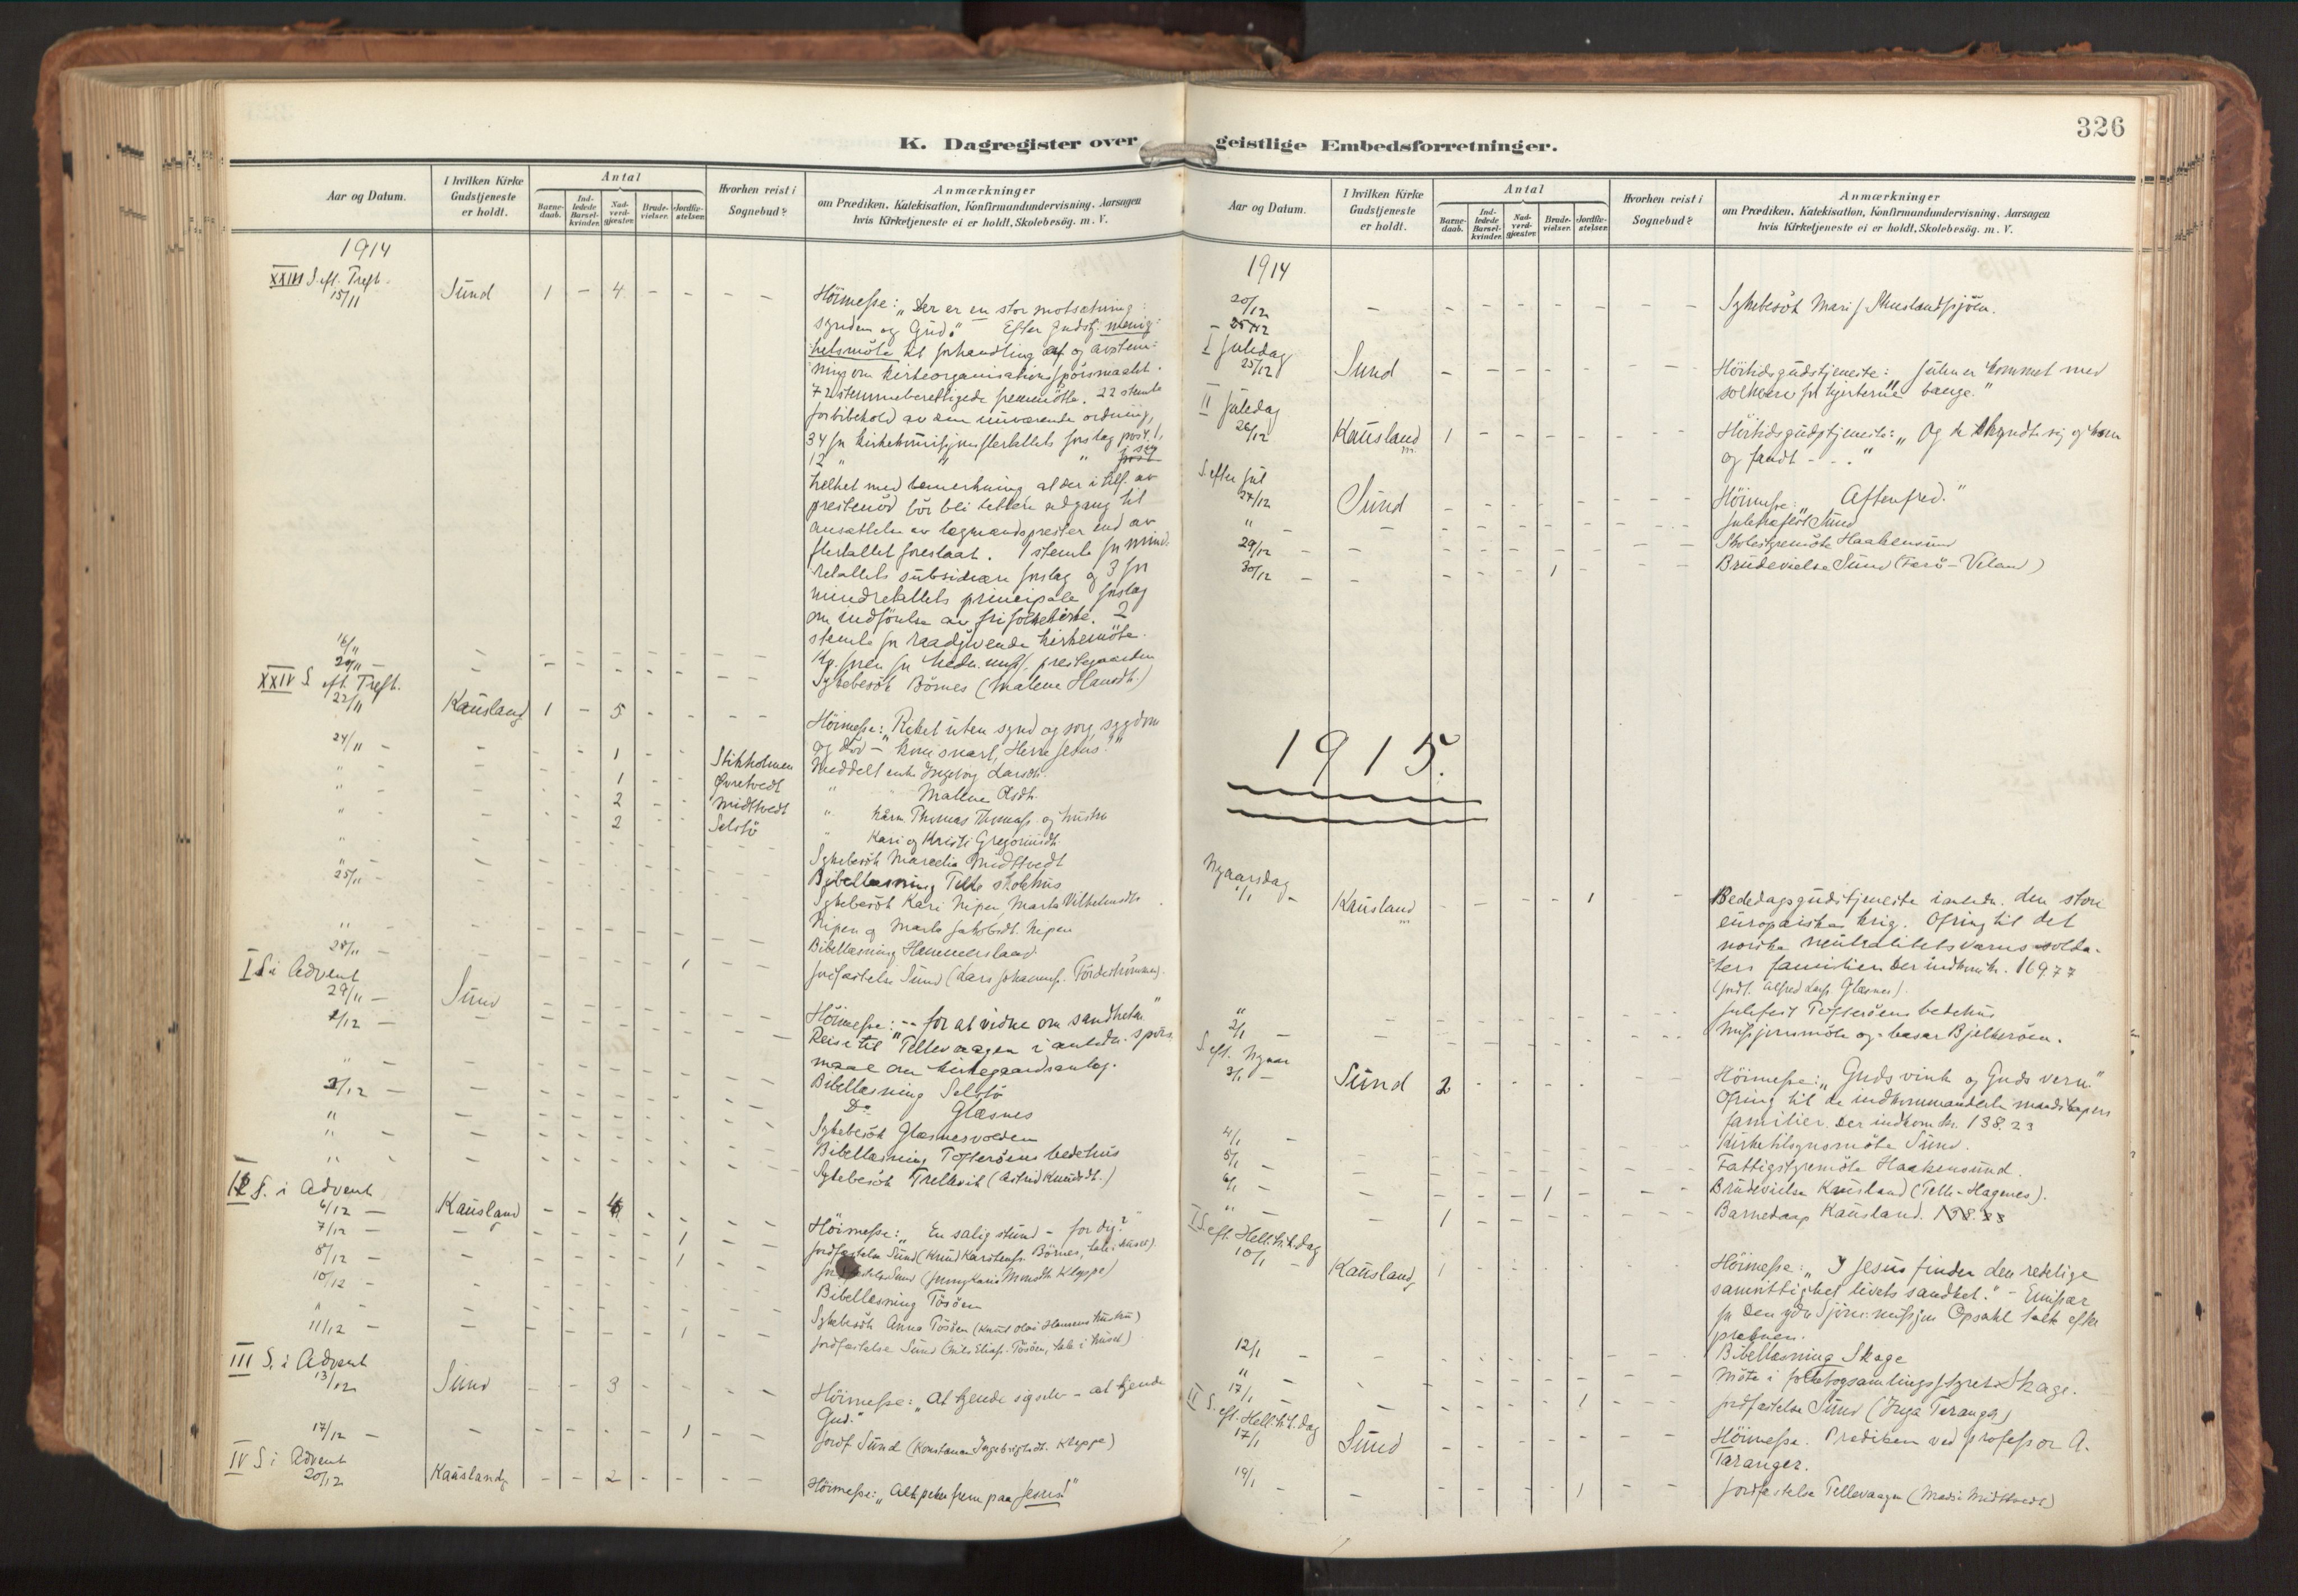 K. Dagregister over geistlige Embedsforretninger.
326
Aar og Datum.
I hvilken Kirke Gudstjeneste er holdt.
Antal
Barnedaab.
Indledede Barselkvinder.
Nadverdgjæster.
Brudevielser.
Jordfæstelser.
Hvorhen reist i Sognebud?
Anmærkninger
om Prædiken, Katekisation, Konfirmandundervisning, Aarsagen
hvis Kirketjeneste ei er holdt, Skolebesög. m. V.
1914
XXIII S. eft. Treft.
15/11 Sund 1 - 4 - - - -
Höimesse: „Der er en stor motsætning:
synden og Gud." Efter Gudstj. menig-
hetsmöte til forhandling af og avstem-
ning om kirkeorganisationsspörsmaalet.
72 stemmeberettigede fremmötte. 22 stemte
for bibehold av den nuværende ordning,
34 for kirkekommissjonsflertallets forslag post 1,
12 " " "
helhet med bemerkning at der i tilf. av
prestenöd bör bli lettere adgang til
ansættelse av lægmandsprester end av
flertallet foreslaat. 1 stemte for mind-
retallets subsidiære forslag og 3 for
mindretallets principale forslag
om indförelse av fri folkekirke. 2
stemte for raadgivende kirkemöte.
16/11 Kv. foren. for hedn. miss. prestegaarden
20/11 Sykebesök Börnes (Malene Hansdt.)
XXIV S. eft. Treft.
22/11 Kausland 1 - 5 - - - -
Höimesse: „Riket uten synd og sorg, sygdom
og död - kom snart, Herre Jesus!"
24/11 - - 1 - - Stikholmen Meddelt enke Ingeborg Larsdt.
" - 1 - - Øvretvedt " Malene Olsdt.
" - 2 - - Midttvedt " kårm. Thomas Thomass. og hustru
" - 2 - - Selstö " Kari og Kristi Gregoriusdt.
" Sykebesök Marcelia Midttvedt
" Bibellæsning Telle skolehus
25/11 - Sykebesök Kari Nipen, Marta Vilhelmsdt.
Nipen og Marta Jakobsdt. Nipen
" Bibellæsning Hammersland
28/11 - 1 Jordfæstelse Sund (Lars Johanness. Fördestrømmen).
I S. i Advent
29/11 - Sund
Höimesse: „-- for at vidne om sandheten"
2/12 - Reise til Tellevaagen i anledn. spörs-
maal om kirkegaardsanlæg.
" - Bibellæsning Selstö
3/12 - Do Glæsnes
" Sykebesök Glæsnesvolden
" - Bibellæsning Tofteröens bedehus
" - Sykebesök Trellevik (Astrid Knudsdt.)
II S. i Advent
6/12 - Kausland - - 4 - - - -
Höimesse: „En salig stund - for dig?"
7/12 - 1 Jordfæstelse Sund (Knud Karstens. Börnes, tale i huset).
8/12 - 1
10/12 - Bibellæsning Tösöen
" - Sykebesök Anna Tösöen (Knut Olai Hansens hustru)
11/12 - 1 Jordfæstelse Sund (Nils Elias. Tösöen, tale i huset)
III S. i Advent
13/12 Sund - - 3 - - - -
Höimesse: „At kjende sigselv - at kjende
Gud."
17/12 - 1 Jordf. Sund (Konstanse Ingebrigtsdt. Kleppe)
IV S. i Advent
20/12 Kausland - - 2 - - - -
Höimesse: „Alt peker frem paa Jesus!"
Aar og Datum.
I hvilken Kirke Gudstjeneste er holdt.
Antal
Barnedaab.
Indledede Barselkvinder.
Nadverdgjæster.
Brudevielser.
Jordfæstelser.
Hvorhen reist i Sognebud?
Anmærkninger
om Prædiken, Katekisation, Konfirmandundervisning, Aarsagen
hvis Kirketjeneste ei er holdt, Skolebesög. m. V.
1914
20/12 - Sykebesök Mari
25/12
I Juledag
25/12 Sund - - - - - - -
Höitidsgudstjeneste: Julen er kommet med
solhverv for hjerterne bange."
II Juledag
26/12 Kausland 1 - - - - - -
Höitidsgudstjeneste: „Og de skyndte sig og kom
og fandt - - ."
S. efter Jul
27/12 Sund
Höimesse: „Aftenfred."
" - Juletræfest Sund
29/12 - Skolestyremöte Haakensund
30/12 - 1 Brudevielse Sund (Terö-Veland)
1915.
Nyaarsdag
1/1 - Kausland - - - - 1
Bededagsgudstjeneste i anledn. den store
europæiske krig. Ofring til det
norske neutralitetsværns solda-
ters familier. Der indkom kr. 169,77
(Jordf. Alfred Larss. Glæsnes).
" Julefest Tofteröens bedehus
2/1 - Missjonsmöte og basar Bjelkeröen.
S. eft. Nyaar
3/1 - Sund 2
Höimesse: „Guds vink og Guds vern."
Ofring til de indkommanderte mandskapers
familier. Der indkom kr. 138.23
4/1 - Kirketilsynsmöte Sund.
5/1 - Fattigstyremöte Haakensund.
6/1 - 1 Brudevielse Kausland (Telle-Hagenes).
" - 1 Barnedaap Kausland.
I S. eft. Hell. tr. k. dag
10/1 - Kausland 1
Höimesse: „I Jesus finder den redelige
samvittighet livets sandhet." - Emissær
for Den indre Sjömandsmissjon Opsahl talte efter
prækenen.
12/1 - Bibellæsning Skage
" - Möte i folkebogsamlingsstyret Skage.
17/1 - 1 Jordfæstelse Sund (Inga Taranger)
II S. eft. Hell. tr. k. dag
17/1 Sund
Höimesse. Prædiken ved professor A.
Taranger.
19/1 - 1 Jordfæstelse Tellevaagen (Mads Midttvedt)